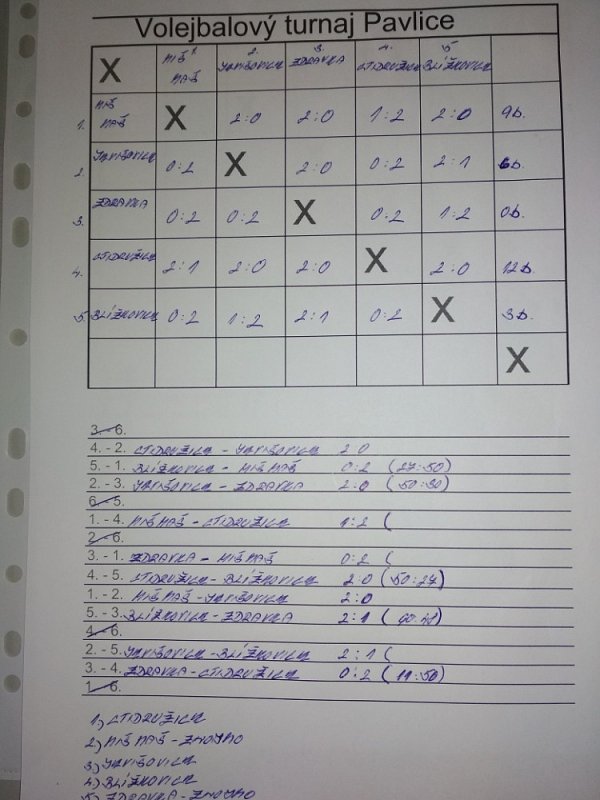 Volejbalový turnaj Pavlice
X MIŠ MAŠ 2. JAKIŠOVICE 3. ZDRAVKA 4. CTIDRUŽICE 5. BLÍŽKOVICE
1. MIŠ MAŠ X 2:0 2:0 1:2 2:0 9b.
2. JAKIŠOVICE 0:2 X 2:0 0:2 2:1 6b.
3. ZDRAVKA 0:2 0:2 X 0:2 1:2 0b.
4. CTIDRUŽICE 2:1 2:0 2:0 X 2:0 12b.
5. BLÍŽKOVICE 0:2 1:2 2:1 0:2 X 3b.
X
3. - 6.
4. - 2. CTIDRUŽICE - JAKIŠOVICE 2:0
5. - 1. BLÍŽKOVICE - MIŠ MAŠ 0:2 (27:50)
2. - 3. JAKIŠOVICE - ZDRAVKA 2:0 (50:30)
6. - 5.
1. - 4. MIŠ MAŠ - CTIDRUŽICE 1:2 (
2. - 6.
3. - 1. ZDRAVKA - MIŠ MAŠ 0:2 (
4. - 5. CTIDRUŽICE - BLÍŽKOVICE 2:0 (50:27)
1. - 2. MIŠ MAŠ - JAKIŠOVICE 2:0
5. - 3. BLÍŽKOVICE - ZDRAVKA 2:1 (
4. - 6.
2. - 5. JAKIŠOVICE - BLÍŽKOVICE 2:1 (
3. - 4. ZDRAVKA - CTIDRUŽICE 0:2 (19:50)
1. - 6.
1) CTIDRUŽICE
2) MIŠ MAŠ - ZNOJMO
3) JAKIŠOVICE
4) BLÍŽKOVICE
5) ZDRAVKA - ZNOJMO